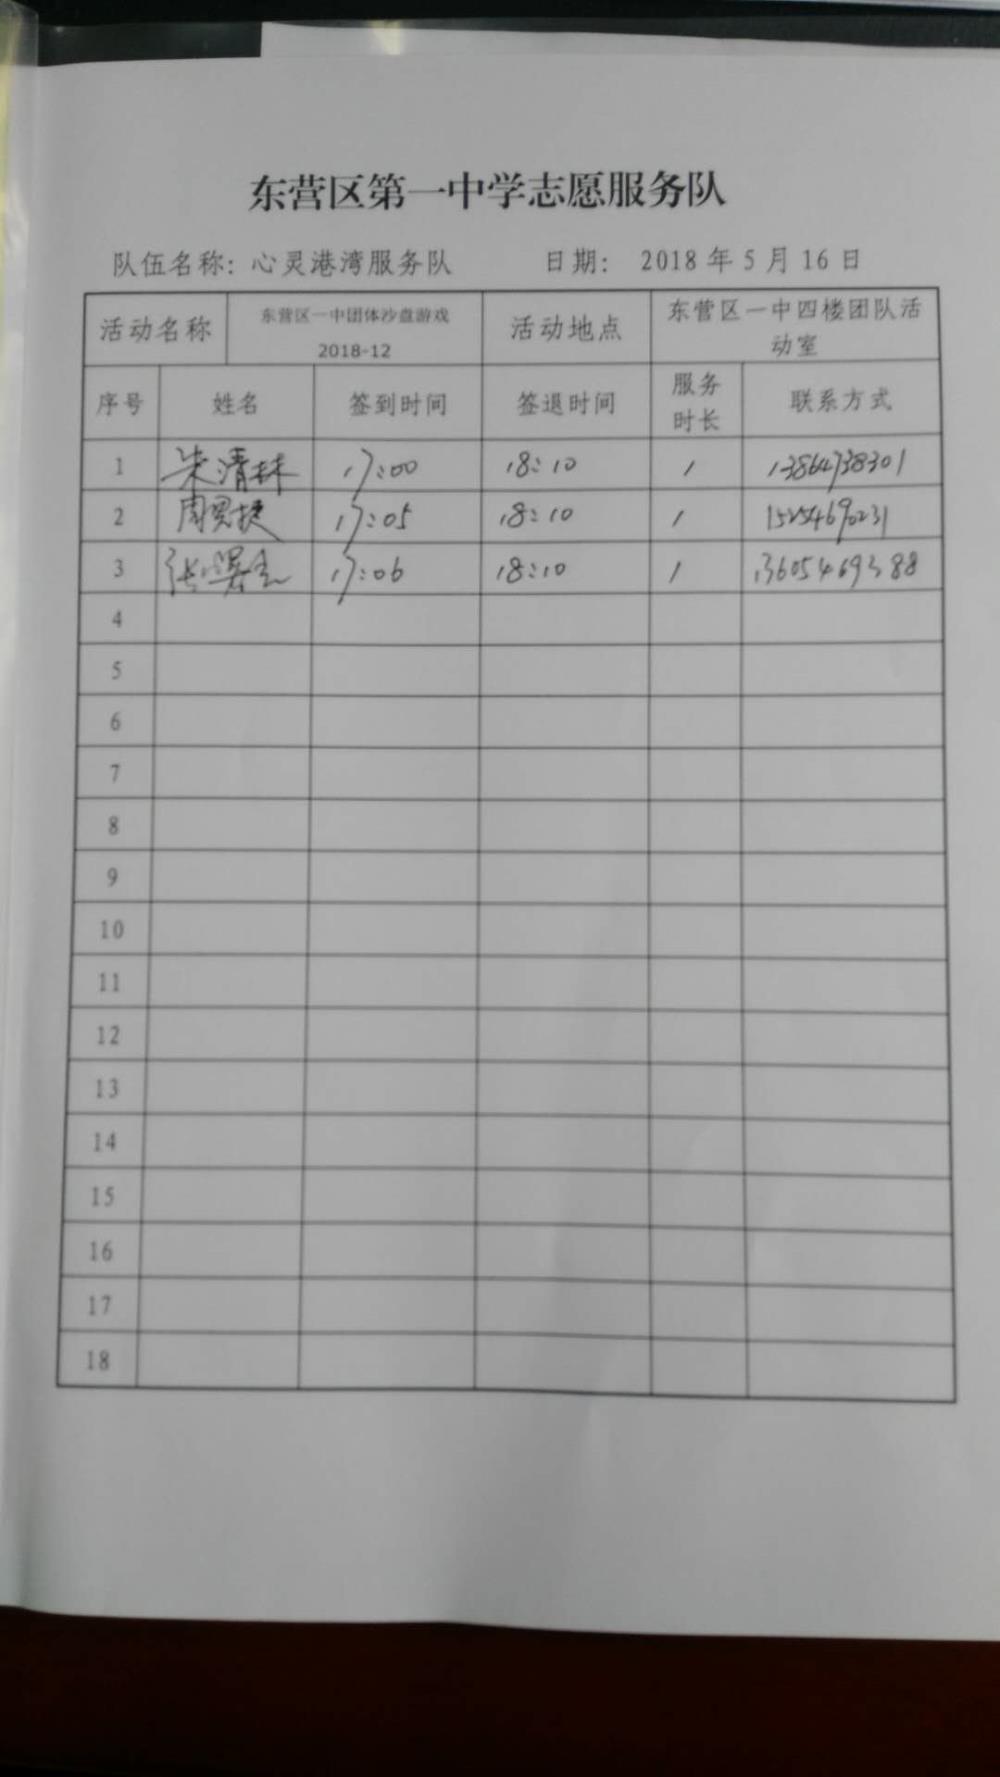 东营区第一中学志愿服务队
队伍名称：心灵港湾服务队 日期： 2018 年 5 月 16 日
活动名称 东营区一中团体沙盘游戏 活动地点 东营区一中四楼团队活
2018-12 动室
序号 姓名 签到时间 签退时间 服务 联系方式
时长
1 朱清林 17:00 18:10 1 13864738301
2 17:05 18:10 1
3 17:06 18:10 1 13605469388
4
5
6
7
8
9
10
11
12
13
14
15
16
17
18